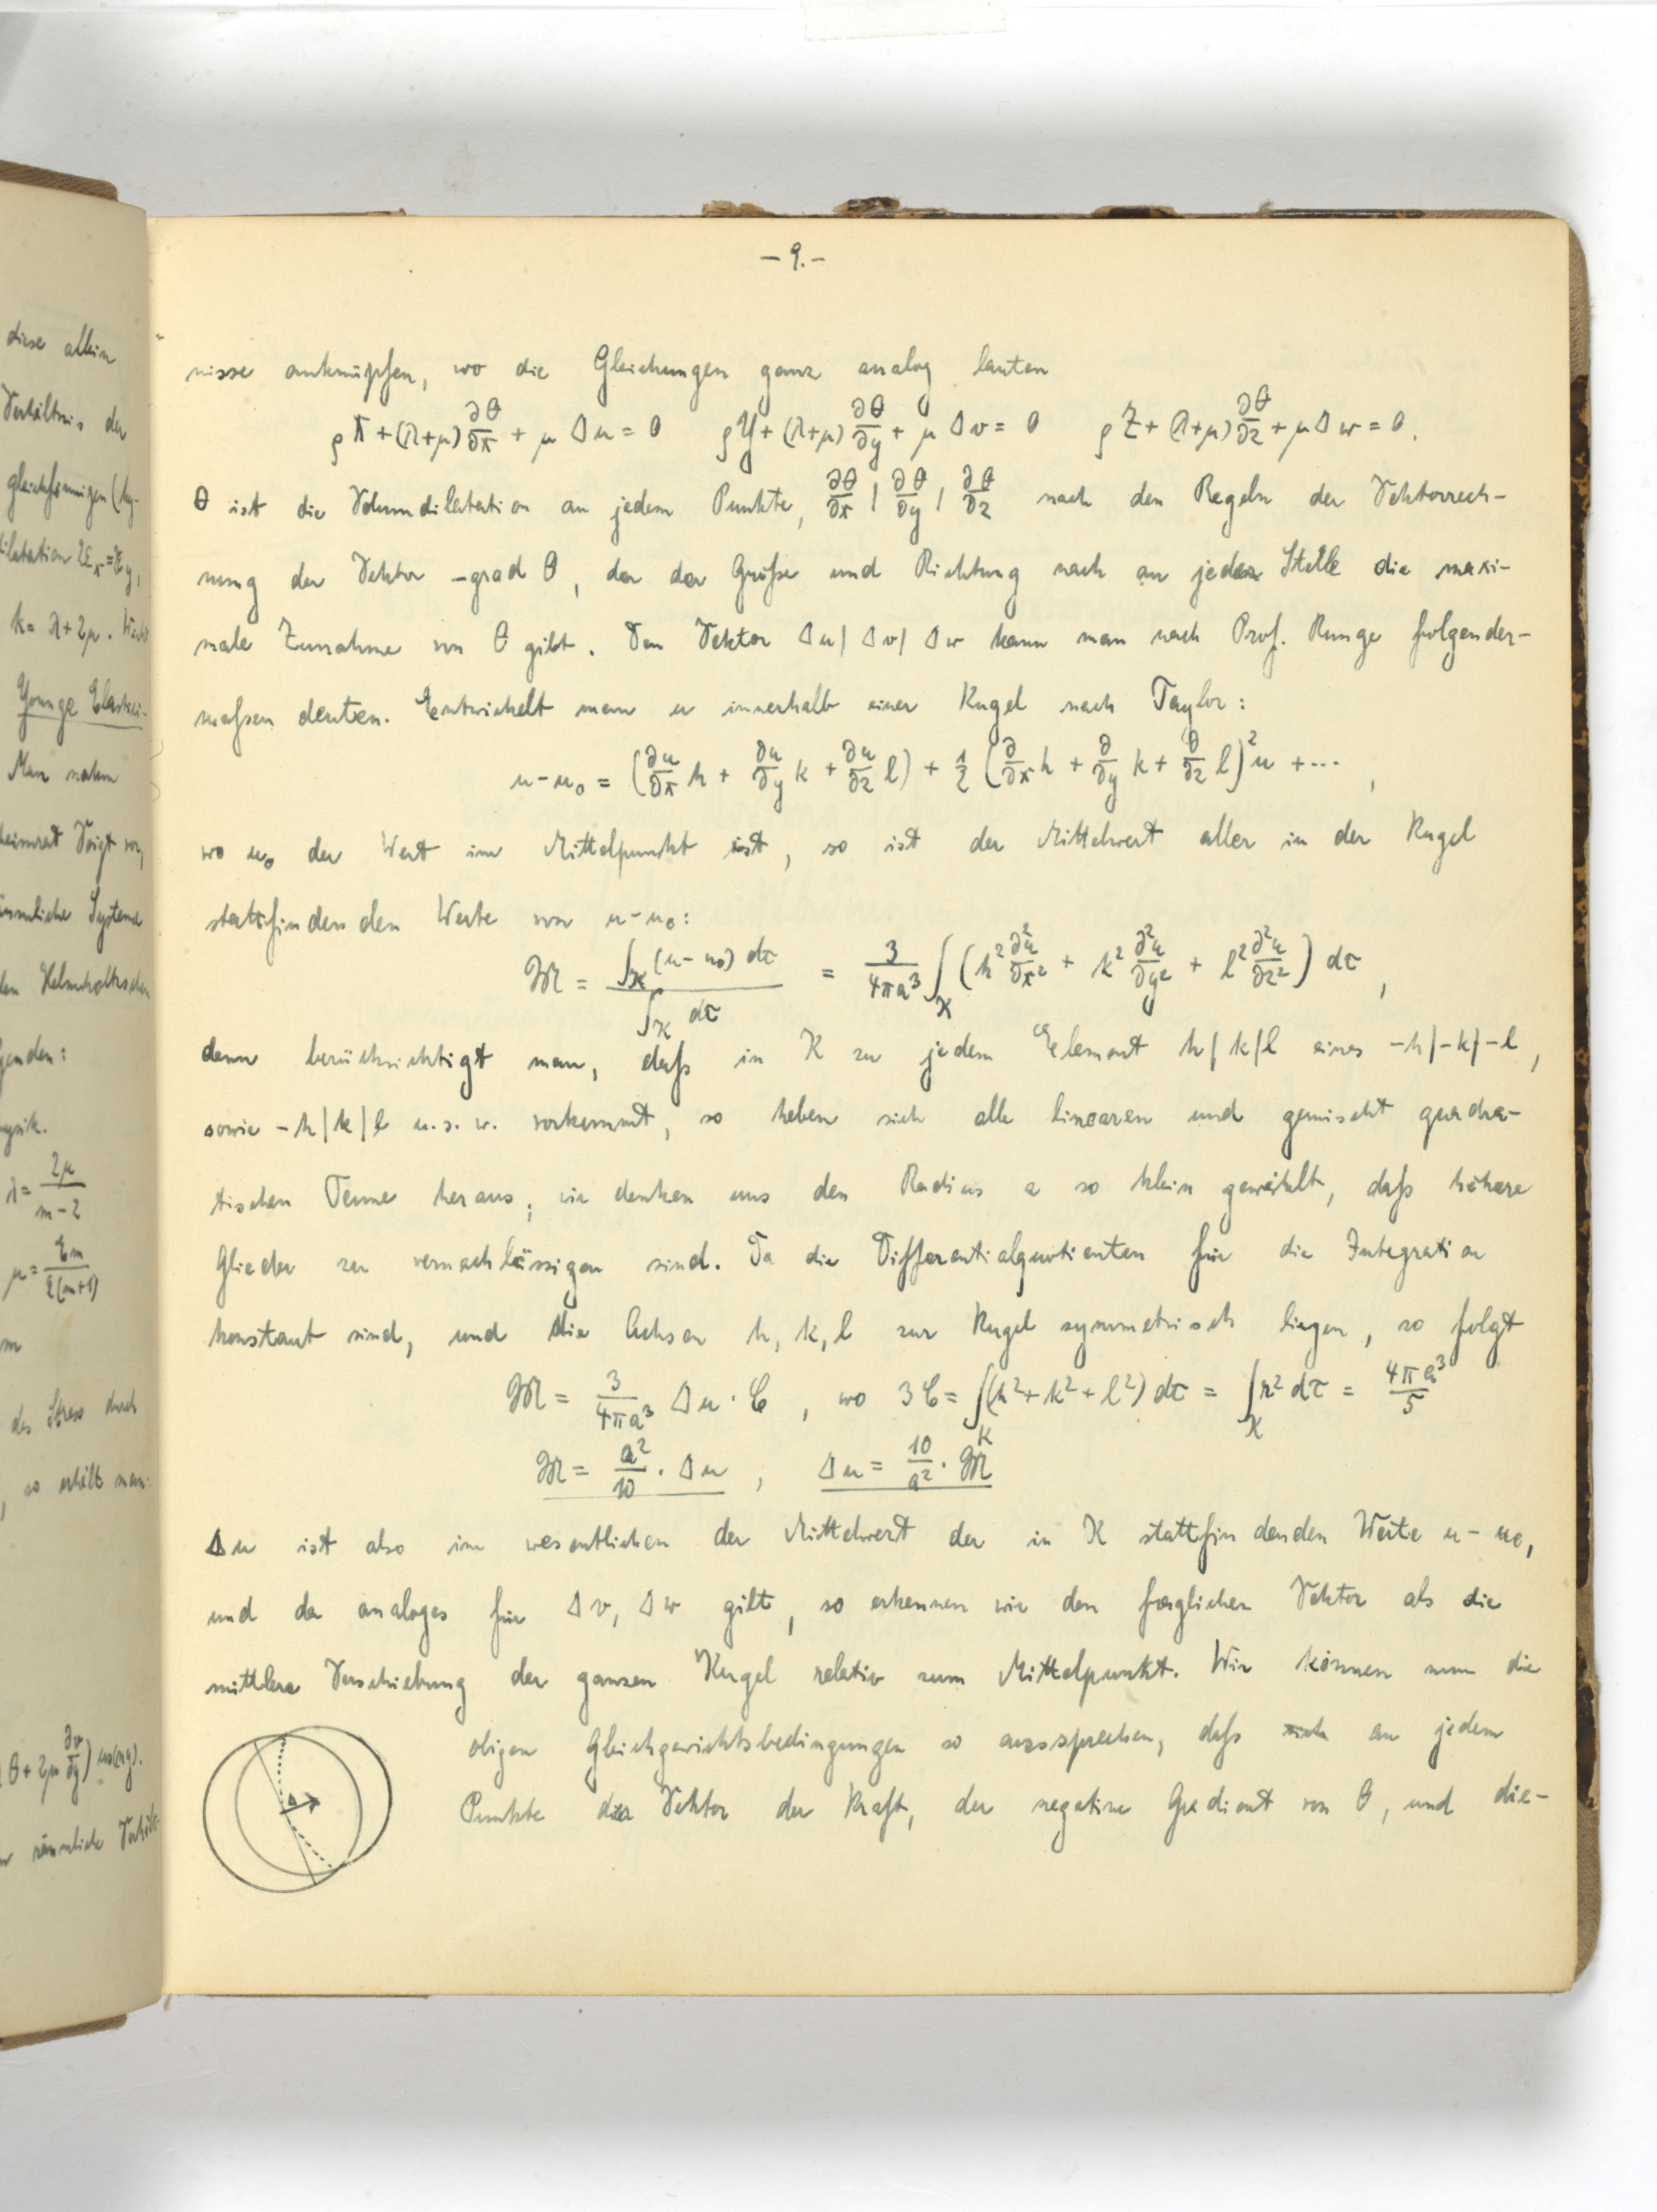 diese allein
Verhältnis der
gleichförmigen (hy-
k = λ+2μ.
Youngs Elastizi-
Man nahm
heimrat Voigt vor,
räumliche Systeme
den Helmholtzschen
genden:
λ = 2μ/(m-2)
μ = Em/(2(m+1))
des Stress durch
, so erhält man:
θ + 2μ ∂v/∂y) cos(ny).
räumliche Verhält-
- 9. -
nisse anknüpfen, wo die Gleichungen ganz analog lauten
ρX + (λ+μ) ∂θ/∂x + μ Δu = 0   ρY + (λ+μ) ∂θ/∂y + μ Δv = 0   ρZ + (λ+μ) ∂θ/∂z + μ Δw = 0.
θ ist die Volumdilatation an jedem Punkte, ∂θ/∂x | ∂θ/∂y | ∂θ/∂z nach den Regeln der Vektorrech-
nung der Vektor -grad θ, der der Größe und Richtung nach an jeder Stelle die maxi-
male Zunahme von θ gibt. Den Vektor Δu | Δv | Δw kann man nach Prof. Runge folgender-
maßen deuten. Entwickelt man u innerhalb einer Kugel nach Taylor:
u - u₀ = (∂u/∂x h + ∂u/∂y k + ∂u/∂z l) + 1/2 (∂/∂x h + ∂/∂y k + ∂/∂z l)² u + ··· ,
wo u₀ der Wert im Mittelpunkt ist, so ist der Mittelwert aller in der Kugel
stattfindenden Werte von u - u₀:
M = ∫_K (u - u₀) dτ / ∫_K dτ = 3/(4πa³) ∫_K (h² ∂²u/∂x² + k² ∂²u/∂y² + l² ∂²u/∂z²) dτ ,
denn berücksichtigt man, daß in K zu jedem Element h | k | l eines -h | -k | -l,
sowie -h | k | l u. s. w. vorkommt, so heben sich alle linearen und gemischt quadra-
tischen Terme heraus; wir denken uns den Radius a so klein gewählt, daß höhere
Glieder zu vernachlässigen sind. Da die Differentialquotienten für die Integration
konstant sind, und die Achsen h, k, l zur Kugel symmetrisch liegen, so folgt
M = 3/(4πa³) Δu · C , wo 3C = ∫_K (h² + k² + l²) dτ = ∫_K r² dτ = 4πa³/5
M = a²/10 · Δu , Δu = 10/a² · M
Δu ist also im wesentlichen der Mittelwert der in K stattfindenden Werte u - u₀,
und da analoges für Δv, Δw gilt, so erkennen wir den fraglichen Vektor als die
mittlere Verschiebung der ganzen Kugel relativ zum Mittelpunkt. Wir können nun die
obigen Gleichgewichtsbedingungen so aussprechen, daß sich an jedem
Punkte der Vektor der Kraft, der negative Gradient von θ, und die-